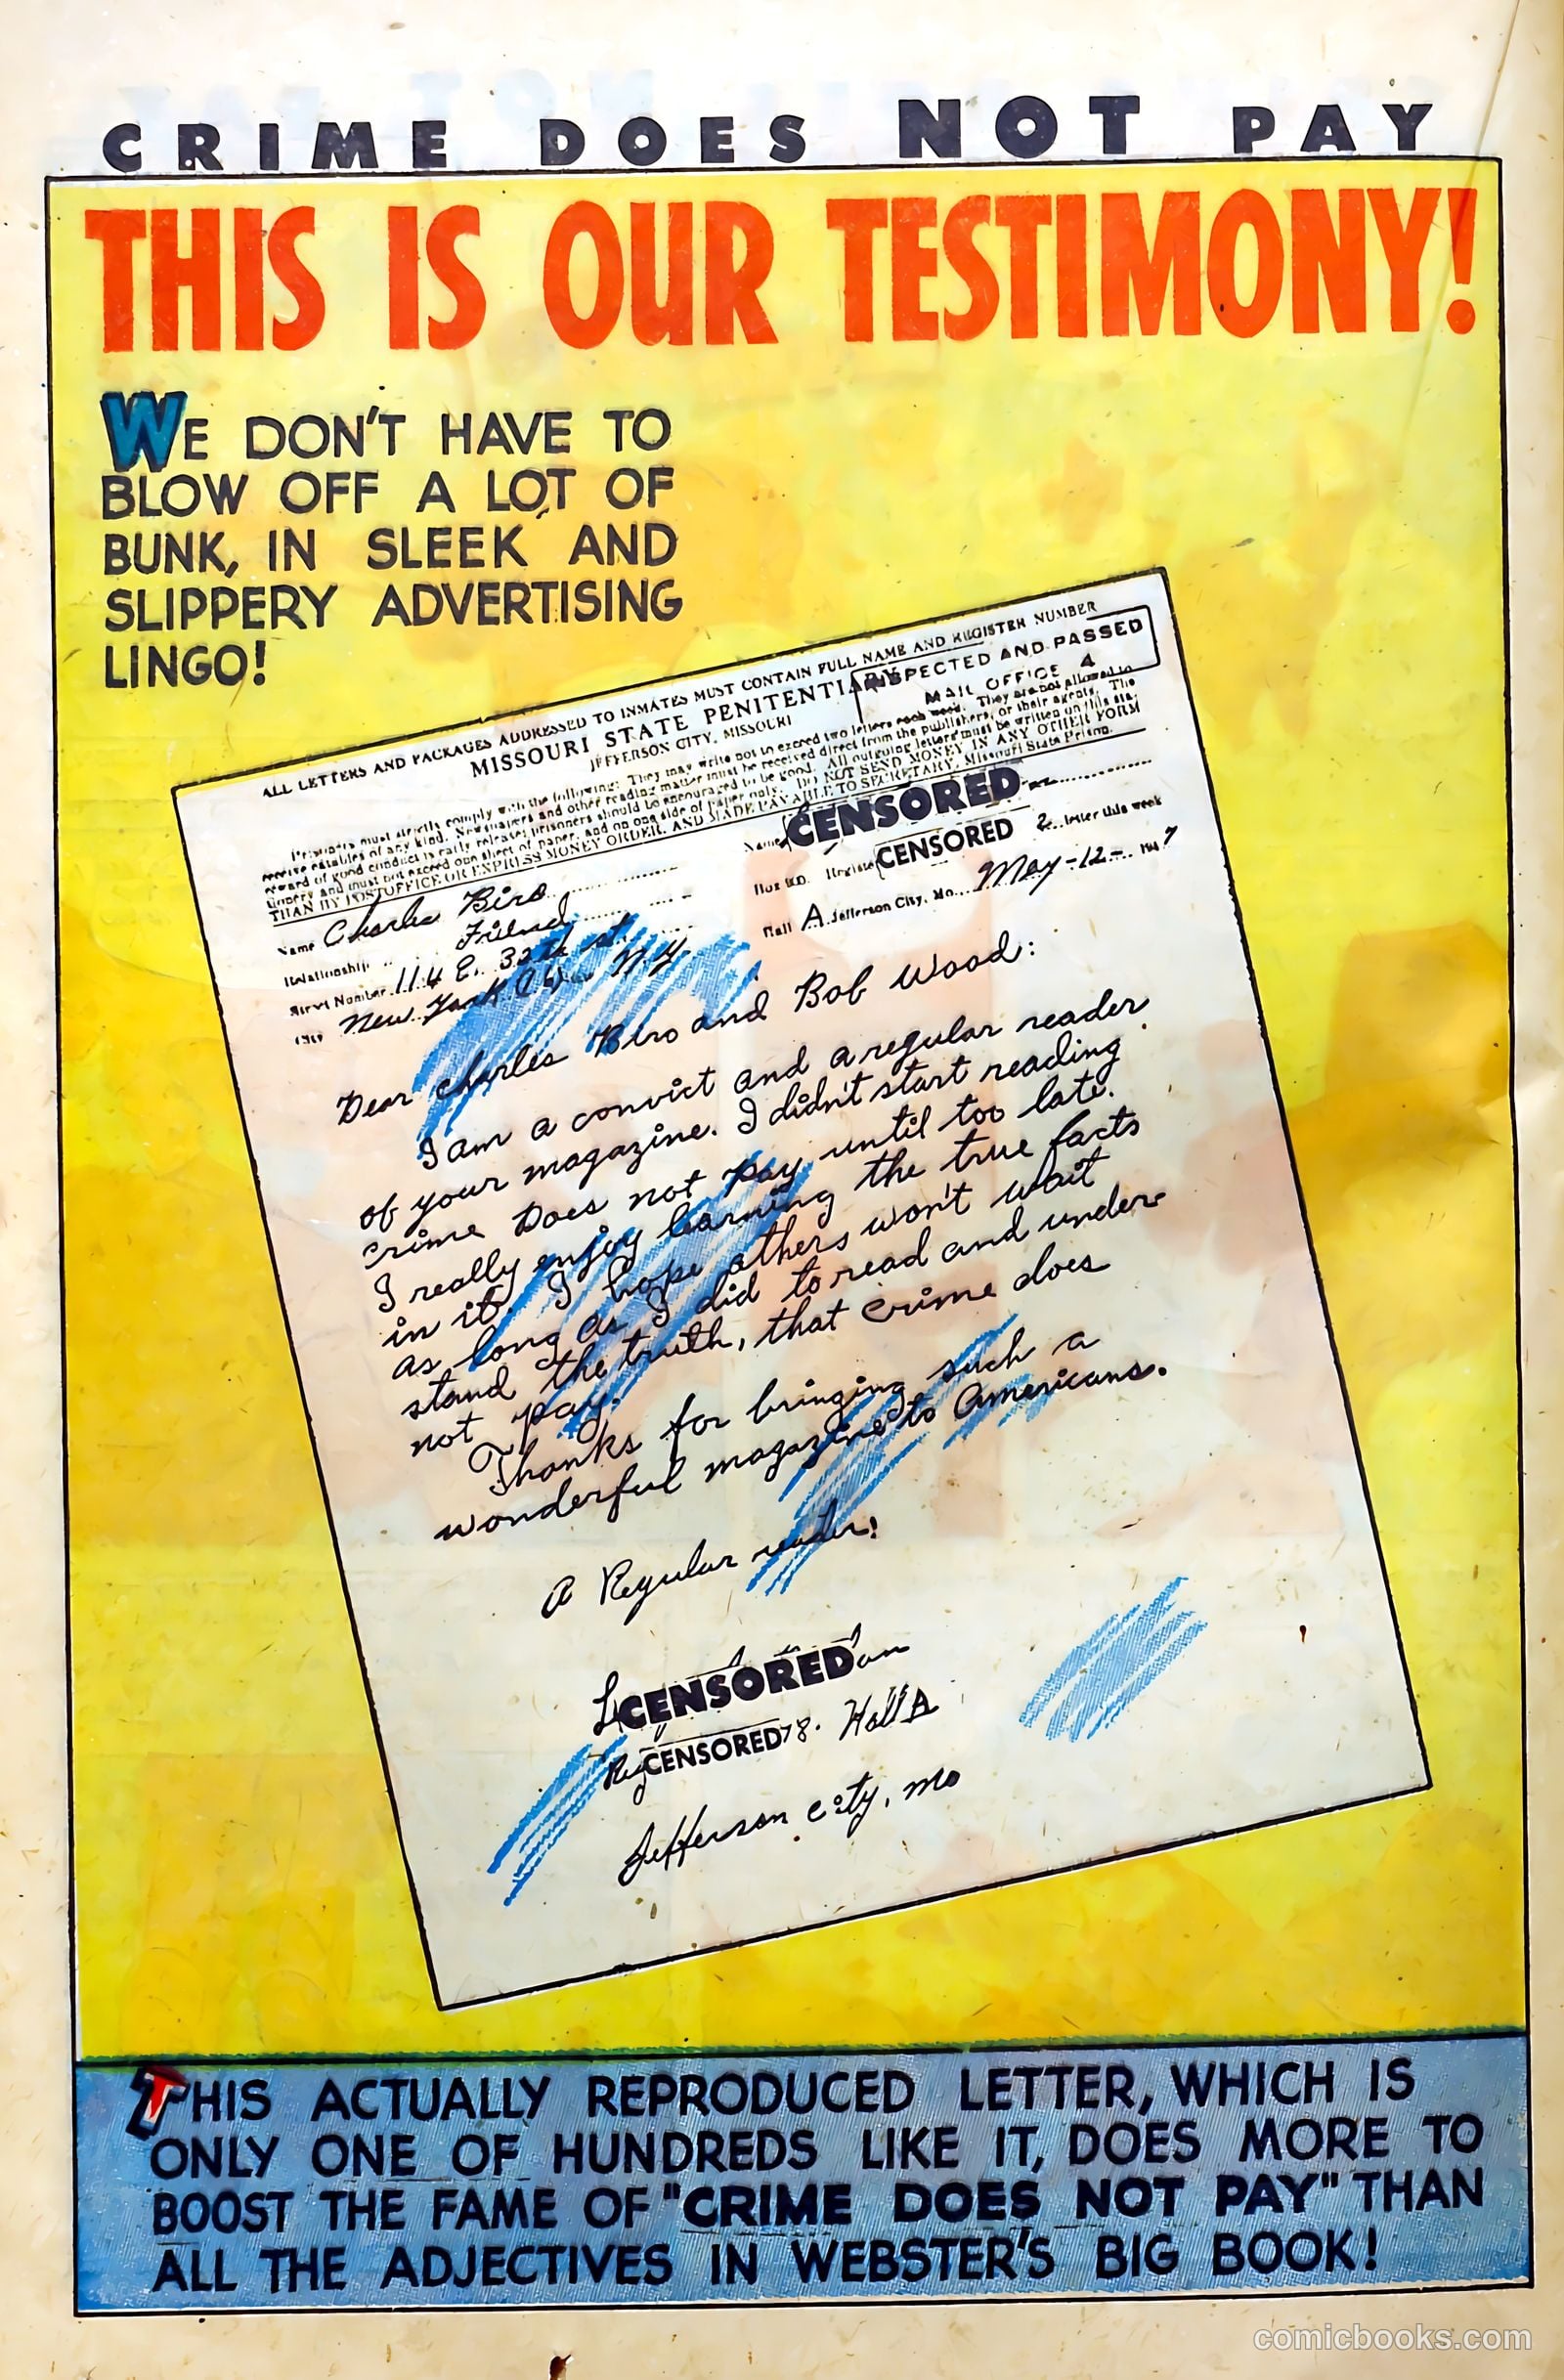 CRIME DOES NOT PAY
THIS IS OUR TESTIMONY!
WE DON'T HAVE TO
BLOW OFF A LOT OF
BUNK, IN SLEEK AND
SLIPPERY ADVERTISING
LINGO!
ALL LETTERS AND PACKAGES ADDRESSED TO INMATES MUST CONTAIN FULL NAME AND REGISTER NUMBER
MISSOURI STATE PENITENTIARY
INSPECTED AND PASSED
JEFFERSON CITY, MISSOURI
MAIL OFFICE 4
Prisoners must strictly comply with the following: They may write not to exceed two letters each week. They are not allowed to
receive eatables of any kind. Newspapers and other reading matter must be received direct from the publishers, or their agents. The
reward of good conduct is early release; prisoners should be encouraged to be good. All outgoing letters must be written on this sta-
tionery and must not exceed one sheet of paper, and on one side of paper only. DO NOT SEND MONEY IN ANY OTHER FORM
THAN BY POSTOFFICE OR EXPRESS MONEY ORDER, AND MADE PAYABLE TO SECRETARY, Missouri State Prison.
Name Charlie Biro
Name CENSORED
Relationship Friend
Box No. Register CENSORED 2 letter this week
Street Number 114 E. 32nd st.
Hall A Jefferson City, Mo. May-12- 1947
City New York City N.Y.
Dear Charles Biro and Bob Wood:
I am a convict and a regular reader
of your magazine. I didn't start reading
Crime Does not Pay until too late.
I really enjoy learning the true facts
in it. I hope others won't wait
as long as I did to read and under-
stand the truth, that crime does
not pay.
Thanks for bringing such a
wonderful magazine to Americans.
A Regular reader!
CENSORED
CENSORED 78. Hall A
Jefferson City, Mo
THIS ACTUALLY REPRODUCED LETTER, WHICH IS
ONLY ONE OF HUNDREDS LIKE IT, DOES MORE TO
BOOST THE FAME OF "CRIME DOES NOT PAY" THAN
ALL THE ADJECTIVES IN WEBSTER'S BIG BOOK!
comicbooks.com